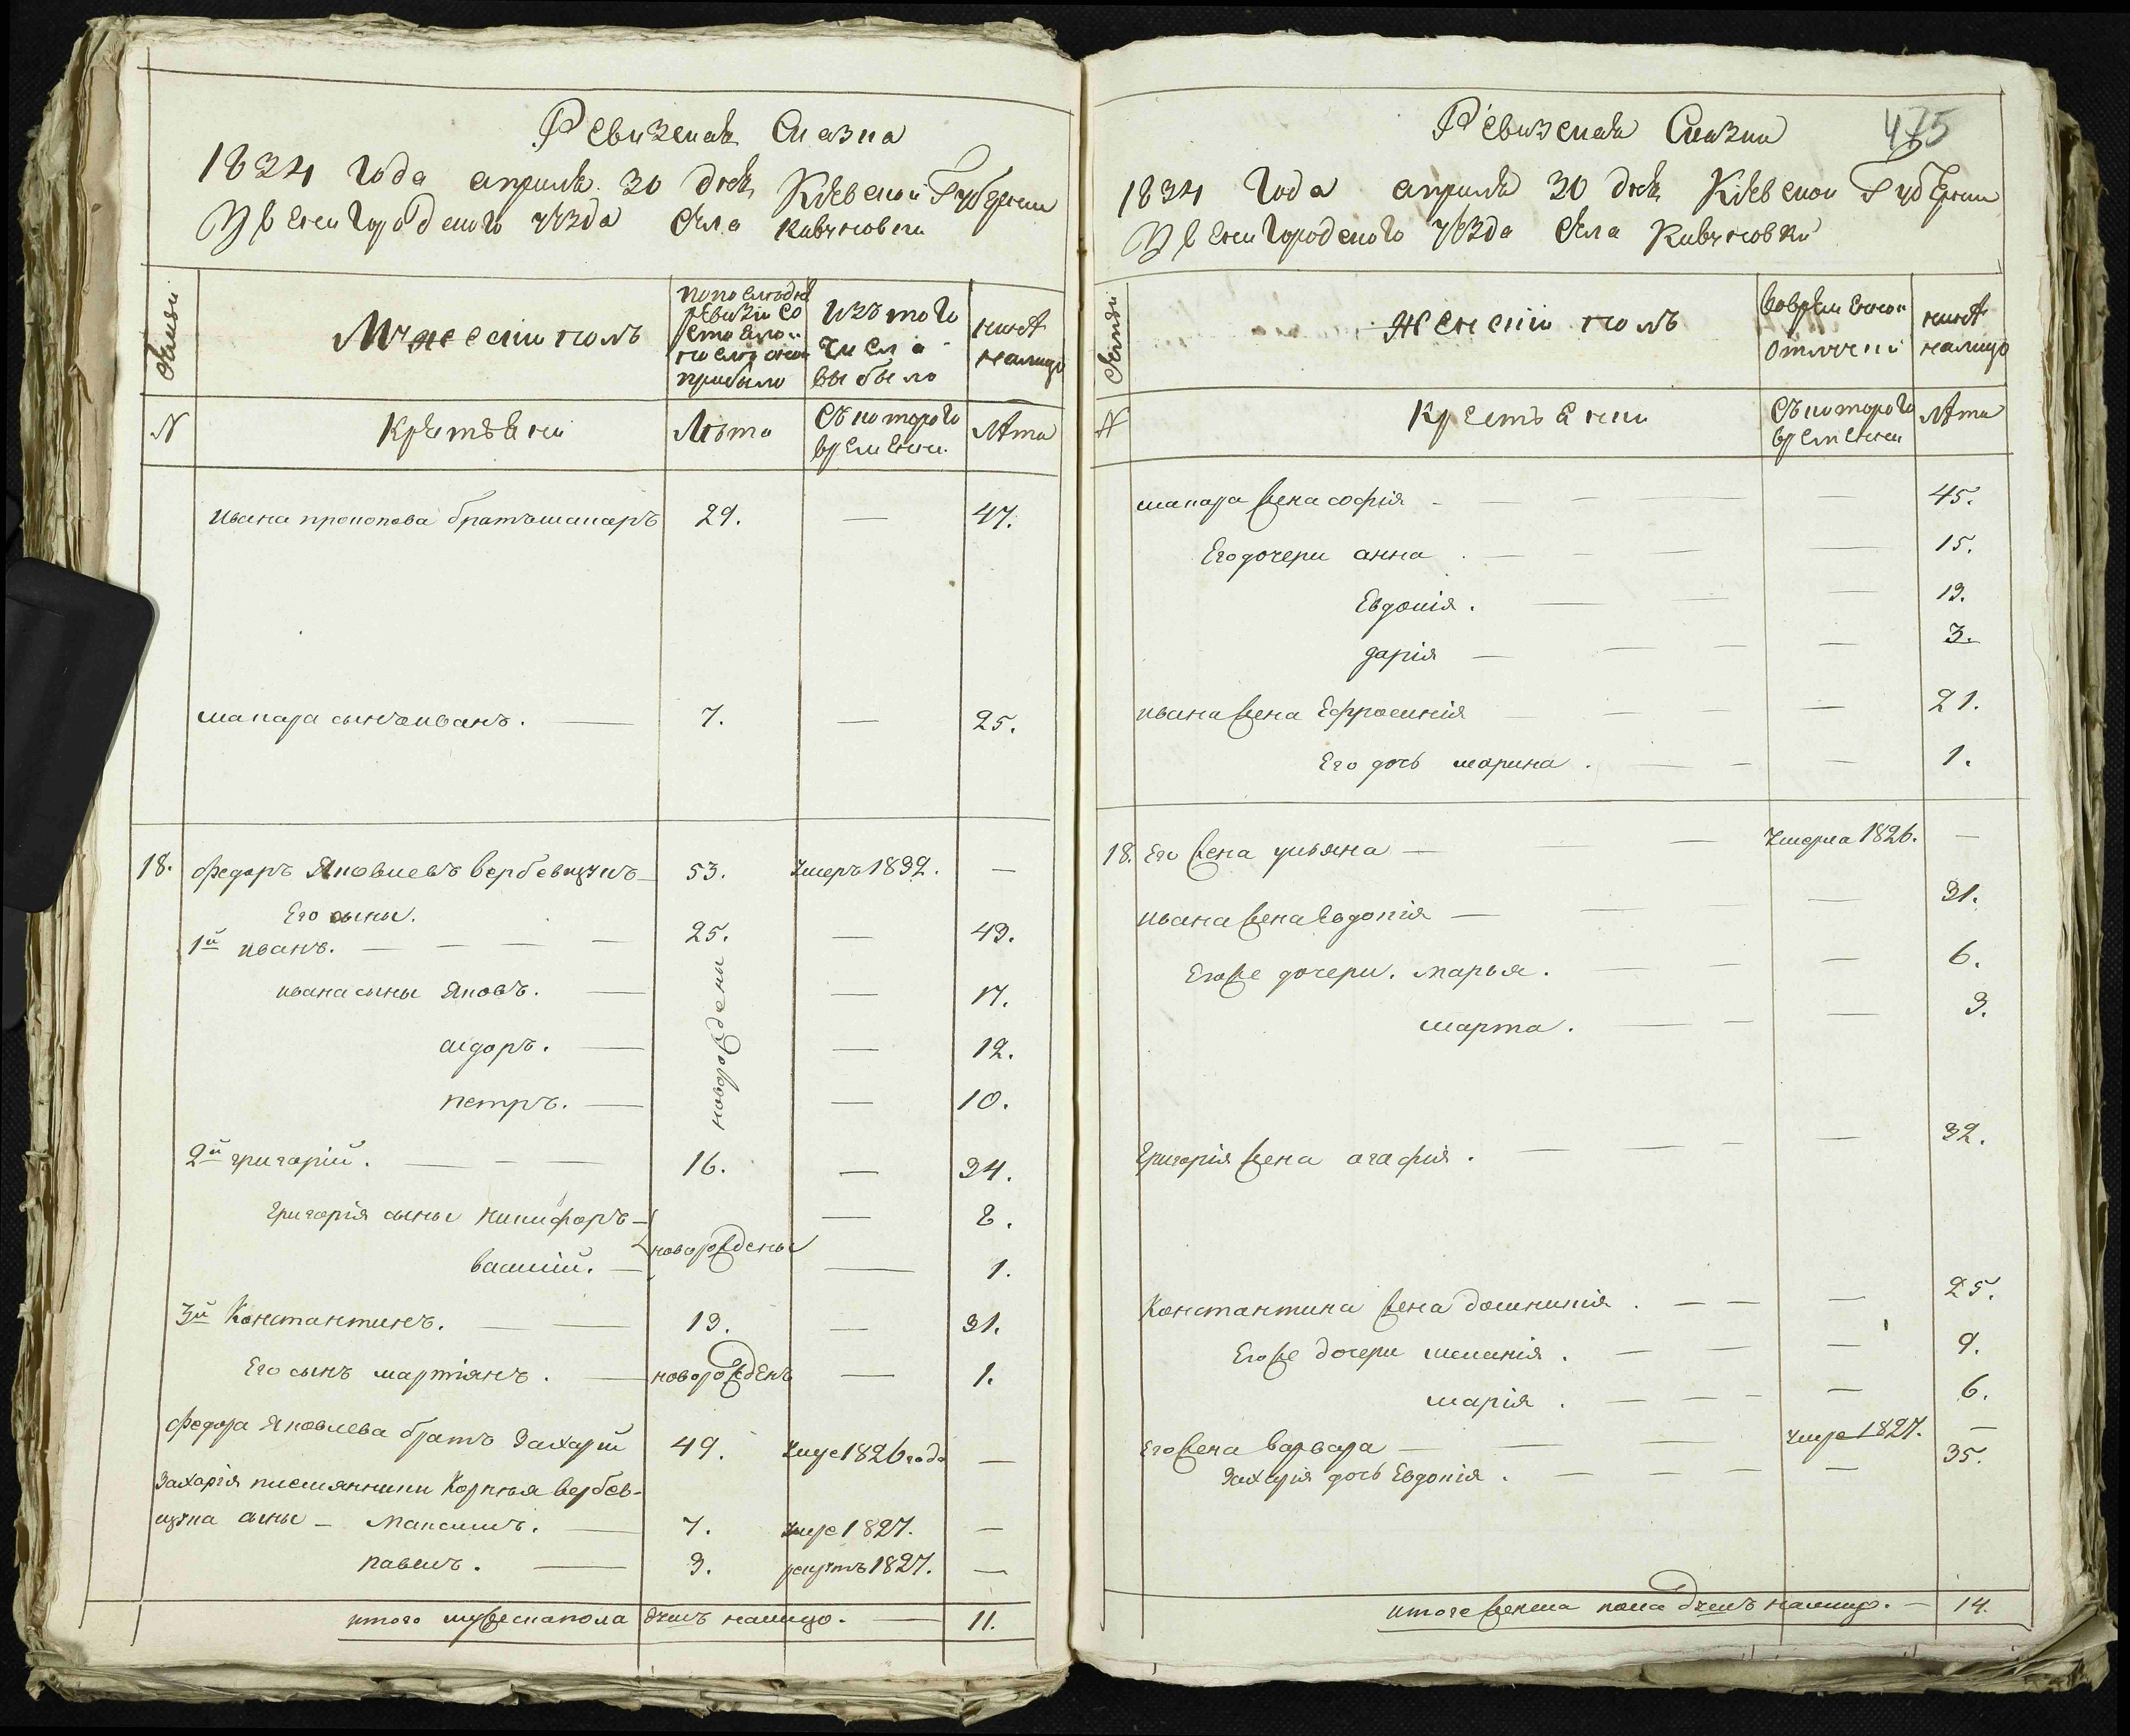 Ревизская Сказка
1834 года апреля 30 дня Киевской Губернии
Звенигородского уезда Села Кивчновки
Семьи
Мужескій полъ
По последней ревизіи состояло и после оной прибыло
Изъ того числа выбыло
ныне на лицо
N
Крестьяни
Лѣта
Съ котораго времени
Лѣта
Ивана прокопова братъ макаръ 29. — 47.
макара сынъ иванъ. — 7. — 25.
18. Федоръ Яковлевъ Вербевщукъ 53. Умеръ 1832. —
Его сыны.
1й иванъ. — 25. — 43.
ивана сыны Яковъ. — новорождени — 17.
сидоръ. — — 12.
петръ. — — 10.
2й григорій. — 16. — 34.
григорія сыны никифоръ — новорождены — 8.
василій. — — 1.
3й Константинъ. — 13. — 31.
Его сынъ мартіянъ. — новорожденъ — 1.
Федора Яковлева братъ Захарій 49. Умре 1826 года —
Захарія племянники Корнѣя Вербев-
щука сыны — Максимъ. — 7. Умре 1827. —
павелъ. — 3. рекрутъ 1827. —
итого мужеска пола душъ налицо. — 11.
Ревизская Сказка 475
1834 года апреля 30 дня Киевской Губернии
Звенигородского уезда Села Кивчновки
Семьи
Женскій полъ
Во временной отлучки
ныне налицо
N
Крестьянки
Съ котораго времени
Лѣта
макара жена софія — — 45.
Его дочери анна. — — 15.
Евдокія. — — 13.
дарія — — 3.
ивана жена Ефросинія — — 21.
Его дочь марина. — — 1.
18. Его жена ульяна — Умерла 1826. —
ивана жена Евдокія — — 31.
Егоже дочери. марья. — — 6.
марта. — — 3.
Григорія жена агафія. — — 32.
Константина жена домникія. — — 25.
Егоже дочери меланія. — — 9.
марія. — — 6.
Его жена варвара — Умре 1827. —
Захарія дочь Евдокія. — — 35.
итого женска пола душъ налицо. — 14.